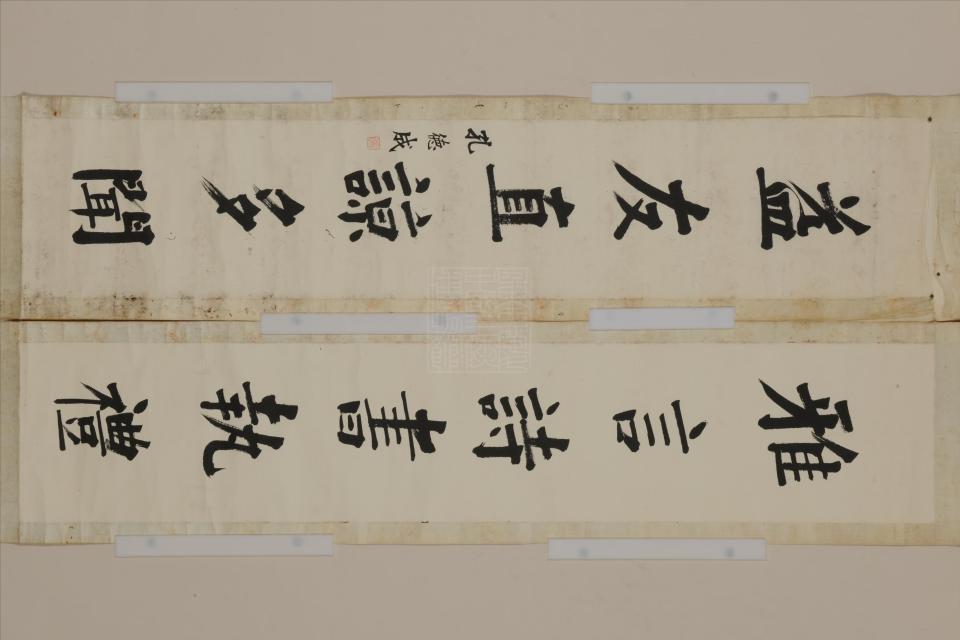 雅言詩書執禮
益友直諒多聞
孔德成